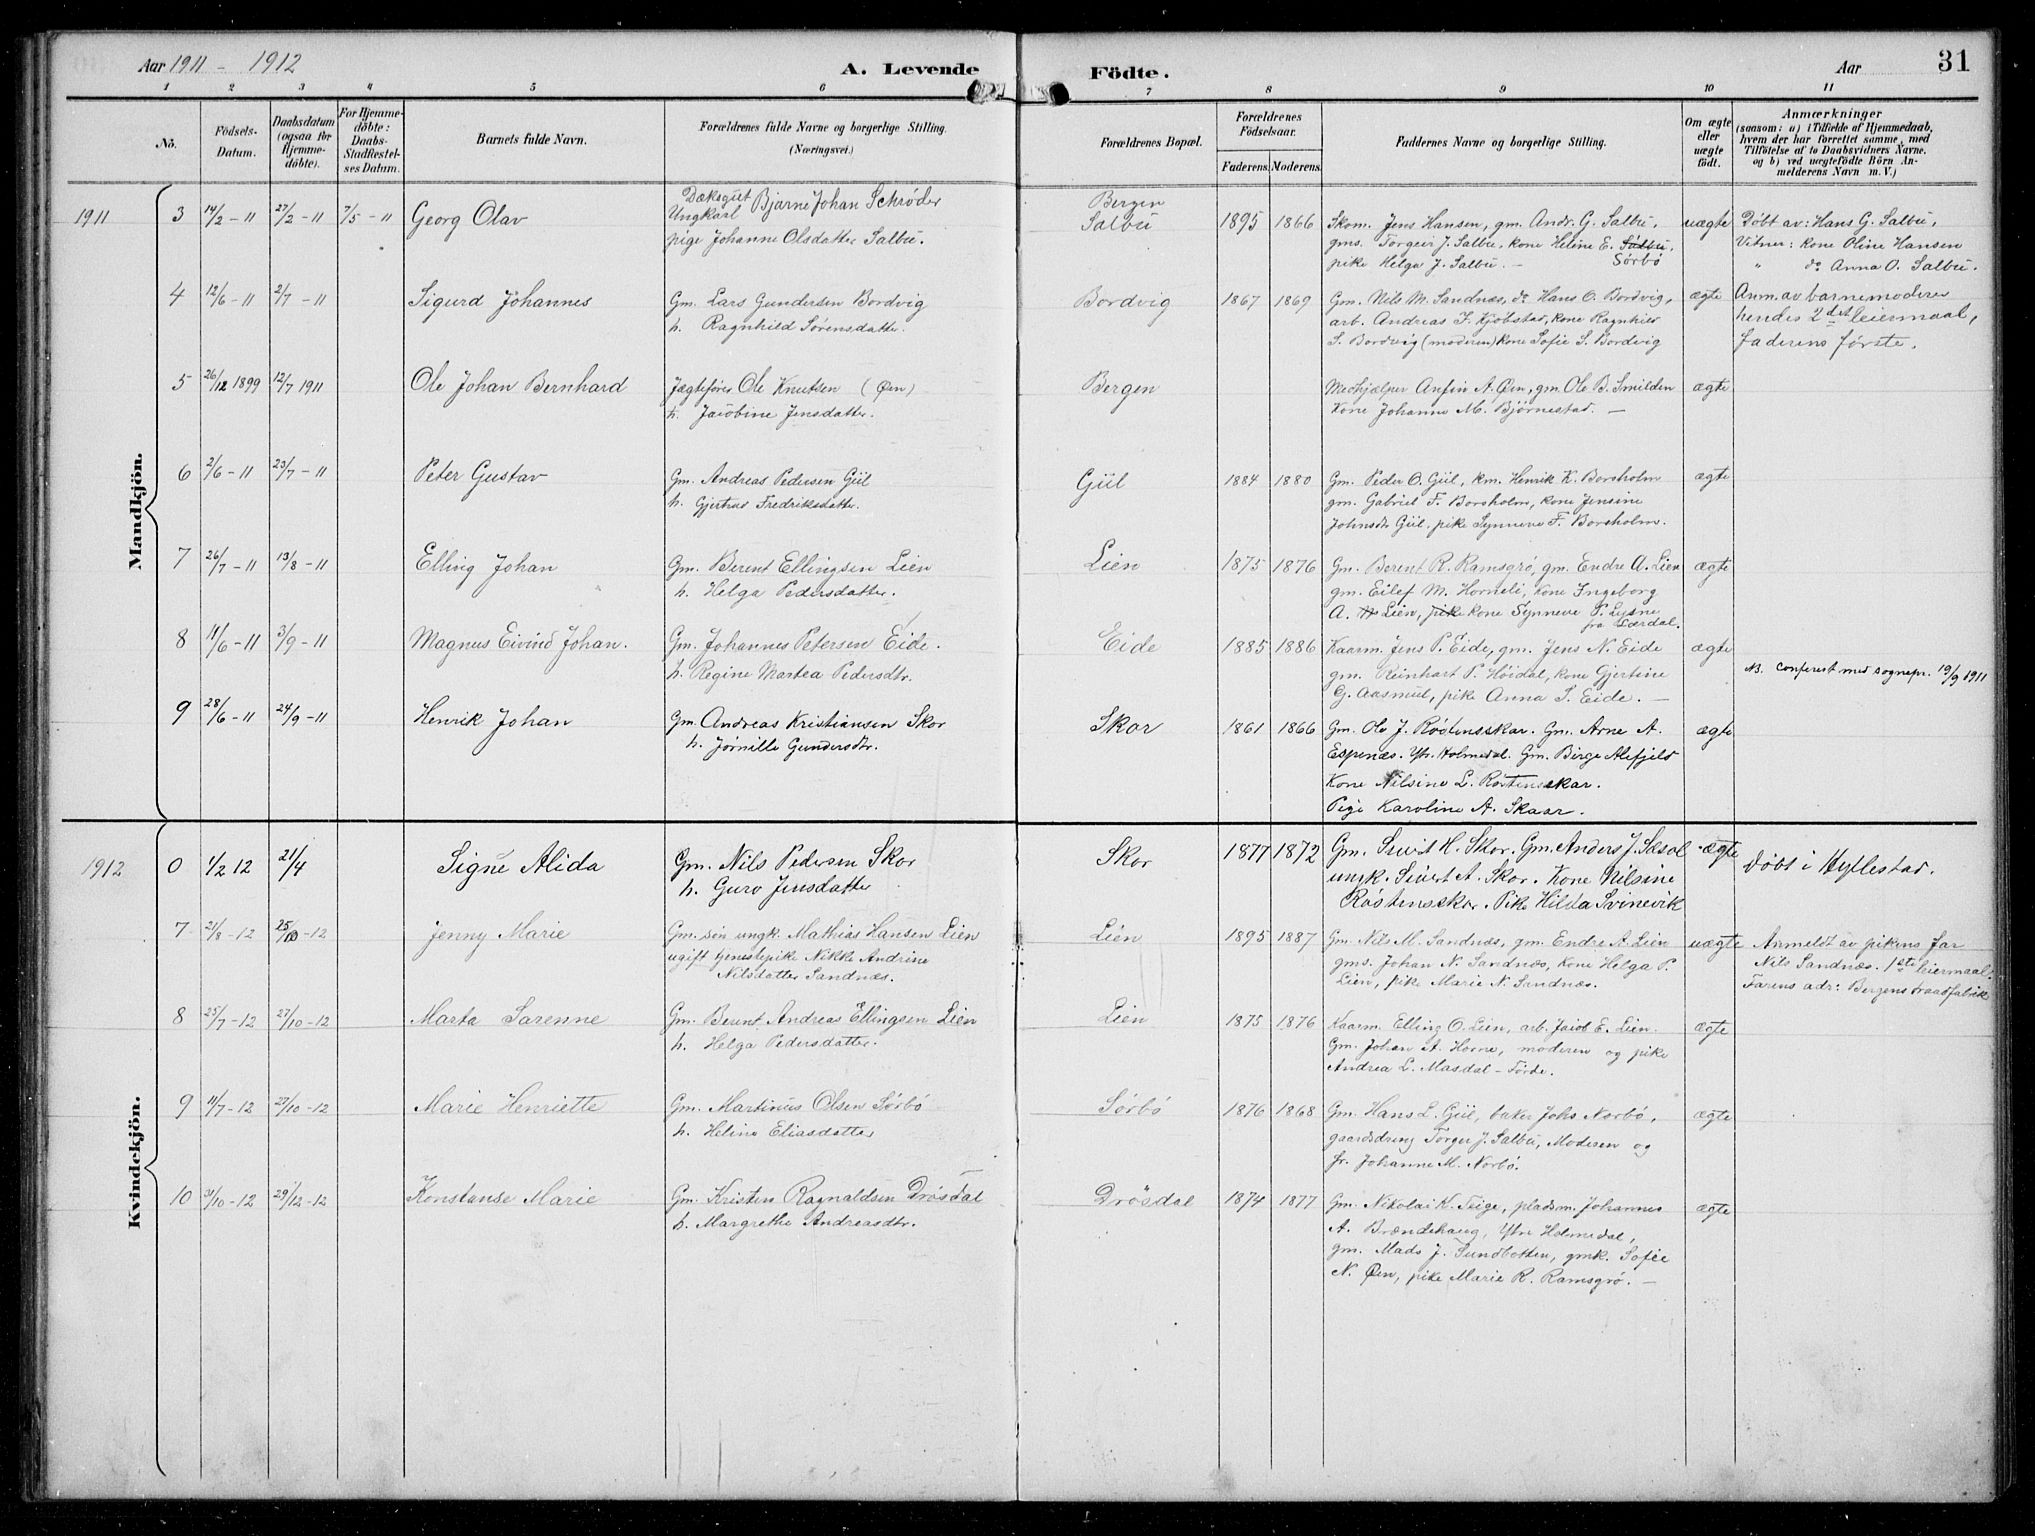 Aar 1911 - 1912
A. Levende Födte.
Aar
31
1 2 3 4 5 6 7 8 9 10 11
No.
Födsels-Datum.
Daabsdatum (ogsaa for Hjemme-döbte).
For Hjemme-döbte: Daabs-Stadfæstel-ses Datum.
Barnets fulde Navn.
Forældrenes fulde Navne og borgerlige Stilling. (Næringsvei.)
Forældrenes Bopæl.
Forældrenes Födselsaar.
Faderens. Moderens.
Faddernes Navne og borgerlige Stilling.
Om ægte eller uægte födt.
Anmærkninger
(saasom: a) i Tilfælde af Hjemmedaab,
hvem der har forrettet samme, med
Tilföielse af to Daabsvidners Navne.
og b) ved uægtefödte Börn An-
melderens Navn m. V.)
Mandkjön.
1911 3 14/2 - 11 27/2 - 11 7/5 - 11 Georg Olav
Dæksgut Ungkarl Bjarne Johan Schrøder
pige Johanne Olsdatter Salbu.
Bergen
Salbu
1895 1866
Skom. Jens Hansen, gm. Andr. G. Salbu,
gms. Torgeir J. Salbu, kone Heline E. Salbu, Sørbø
pike Helga J. Salbu. -
uægte
Döbt av: Hans G. Salbu,
Vitner: kone Oline Hansen
" do Anna O. Salbu.
4 12/6 - 11 2/7 - 11 Sigurd Johannes
Gm. Lars Gundersen Bordvig
h. Ragnhild Sørensdatter.
Bordvig
1867 1869
Gm. Nils M. Sandnæs, do Hans O. Bordvig,
arb. Andreas J. Kjöbstad, kone Ragnhild
S. Bordvig (moderen) kone Sofie S. Bordvig
ægte
Anm. av barnemoderen
hendes 2det leiermaal,
faderens første.
5 26/12 1899 12/7 1911 Ole Johan Bernhard
Jægtefører Ole Knutsen (Øen)
h. Jacobine Jensdatter.
Bergen
Medhjælper Anfin A. Øen, gm. Ole B. Smilden
Kone Johanne M. Bjørnestad. -
ægte
6 2/6 - 11 23/7 - 11 Peter Gustav
Gm. Andreas Pedersen Giil
h. Gjertrud Fredriksdatter.
Giil
1884 1880
Gm. Peder O. Giil, km. Henrik K. Borsholm
gm. Gabriel F. Borsholm, kone Jensine
Johnsdtr Giil, pike Synneve F. Borsholm.
ægte
7 26/7 - 11 13/8 - 11 Elling Johan
Gm. Berent Ellingsen Lien
h. Helga Pedersdatter.
Lien
1875 1876
Gm. Berent R. Ramsgrø, gm. Endre A. Lien
gm. Eilef M. Horneli, kone Ingeborg
A. Lien, pike kone Synneve P. Lysne
fra Lærdal.
ægte
8 11/6 - 11 3/9 - 11 Magnus Eivind Johan.
Gm. Johannes Petersen Eide.
h. Regine Martea Pedersdtr.
Eide
1885 1886
Kaarm. Jens P. Eide, gm. Jens N. Eide
gm. Reinhart P. Høidal, kone Gjertine
G. Aasmul, pike Anna J. Eide. -
ægte
NB. Conferert med sognepr. 19/9 1911
9 28/6 - 11 24/9 - 11 Henrik Johan
Gm. Andreas Kristiansen Skor
h. Jørnille Gundersdtr.
Skor
1861 1866
Gm. Ole J. Røstensskar. Gm. Arne A.
Espenæs. Ytr. Holmedal. Gm. Birge Alefjeld
Kone Nilsine L. Röstensskar.
Pige Karoline A. Skaar.
ægte
Kvindekjön.
1912 0 1/2 12 21/4 Signe Alida
Gm. Nils Pedersen Skor
h. Guro Jensdatter
Skor
1877 1872
Gm. Sivert H. Skor. Gm. Anders J. Sæsol
ungk. Sivert A. Skor. Kone Nilsine
Röstensskor. Pike Hilda Svinevik
ægte
Döbt i Hyllestad.
7 21/8 - 12 25/10 - 12 Jenny Marie
Gm. søn ungk. Mathias Hansen Lien
ugift tjenestepike Nikke Andrine
Nilsdatter Sandnæs.
Lien
1895 1887
Gm. Nils M. Sandnæs, gm. Endre A. Lien
gms. Johan N. Sandnæs, kone Helga P.
Lien, pike Marie N. Sandnæs.
uægte
Anmeldt av pikens far
Nils Sandnæs. 1ste leiermaal.
Farens adr: Bergens traadfabrik
8 25/7 - 12 27/10 - 12 Marta Sarenne
Gm. Berent Andreas Ellingsen Lien
h. Helga Pedersdatter.
Lien
1875 1876
Kaarm. Elling O. Lien, arb. Jacob E. Lien.
Gm. Johan A. Horne, moderen og pike
Andrea L. Masdal - Førde.
ægte
9 11/7 - 12 27/10 - 12 Marie Henriette
Gm. Martinus Olsen Sørbø
h. Heline Eliasdatter
Sørbø
1876 1868
Gm. Hans L. Giil, baker Johs Norbø,
gaardsdreng Torger J. Salbu, Moderen og
fr. Johanne M. Norbø.
ægte
10 31/10 - 12 29/12 - 12 Konstanse Marie
Gm. Kristen Ragnaldsen Drösdal
h. Margrethe Andreasdtr.
Drösdal
1874 1877
Gm. Nikolai K. Teige, pladsm. Johannes
A. Brændehaug, Ytre Holmedal,
gm. Mads J. Sundbotten, gmk. Sofie
N. Øen, pike Marie R. Ramsgrø. -
ægte